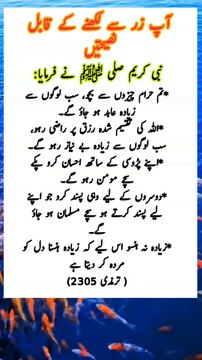 آپ زر سے لکھنے کے قابل
نصیحتیں
نبی کریم صلی ﷺ نے فرمایا:
*تم حرام چیزوں سے بچو، سب لوگوں سے
زیادہ عابد ہو جاؤ گے۔
*اللہ کی تقسیم شدہ رزق پر راضی رہو،
سب لوگوں سے زیادہ بے نیاز رہو گے۔
*اپنے پڑوسی کے ساتھ احسان کرو پکے
سچے مومن رہو گے۔
*دوسروں کے لیے وہی پسند کرو جو اپنے
لیے پسند کرتے ہو سچے مسلمان ہو جاؤ
گے۔
*زیادہ نہ ہنسو اس لیے کہ زیادہ ہنسنا دل کو
مردہ کر دیتا ہے
( ترمذی 2305)